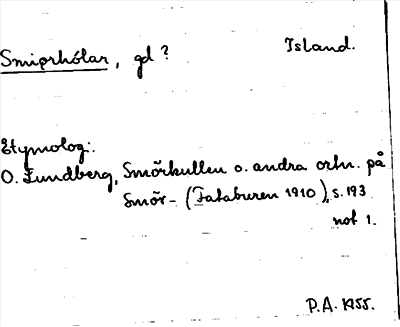 Smiprhólar, gd? Island.
Etymolog:.
O. Lundberg, Smörkullen o. andra ortn. på
Smör- (Fataburen 1910), s. 193
not 1.
P.A. 1955.